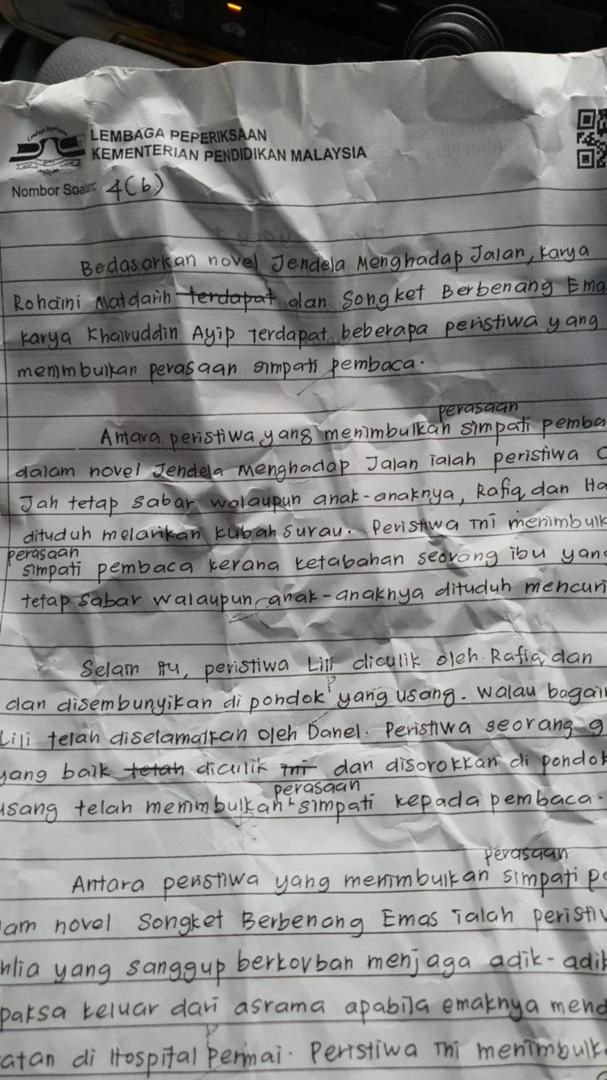 LEMBAGA PEPERIKSAAN
KEMENTERIAN PENDIDIKAN MALAYSIA
Nombor Soalan: 4(b)
Bedasarkan novel Jendela Menghadap Jalan, karya
Rohaini Matdarin terdapat dan Songket Berbenang Ema
karya Khairuddin Ayip Terdapat beberapa peristiwa yang
menimbulkan perasaan simpati pembaca.
perasaan
Antara peristiwa yang menimbulkan simpati pemba
dalam novel Jendela Menghadap Jalan ialah peristiwa
Jah tetap sabar walaupun anak-anaknya, Rafiq dan Ha
dituduh melarikan kubah surau. Peristiwa ini menimbulk
perasaan
simpati pembaca kerana ketabahan seorang ibu yan
tetap sabar walaupun anak-anaknya dituduh mencuri
Selain itu, peristiwa Lili diculik oleh Rafiq dan
dan disembunyikan di pondok yang usang. Walau bagai
Lili telah diselamatkan oleh Danel. Peristiwa seorang g
yang baik telah diculik ini dan disorokkan di pondok
perasaan
usang telah menimbulkan simpati kepada pembaca.
perasaan
Antara peristiwa yang menimbulkan simpati pe
lam novel Songket Berbenang Emas ialah peristiw
hlia yang sanggup berkorban menjaga adik-adik
paksa keluar dari asrama apabila emaknya mend
atan di Hospital Permai. Peristiwa ini menimbulk